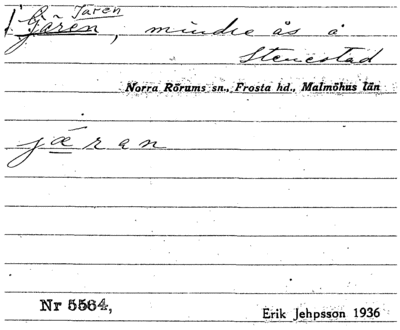 Jären
Jären, mindre ås å
Stenestad
Norra Rörums sn., Frosta hd., Malmöhus län
järan
Nr 5564,
Erik Jehpsson 1936